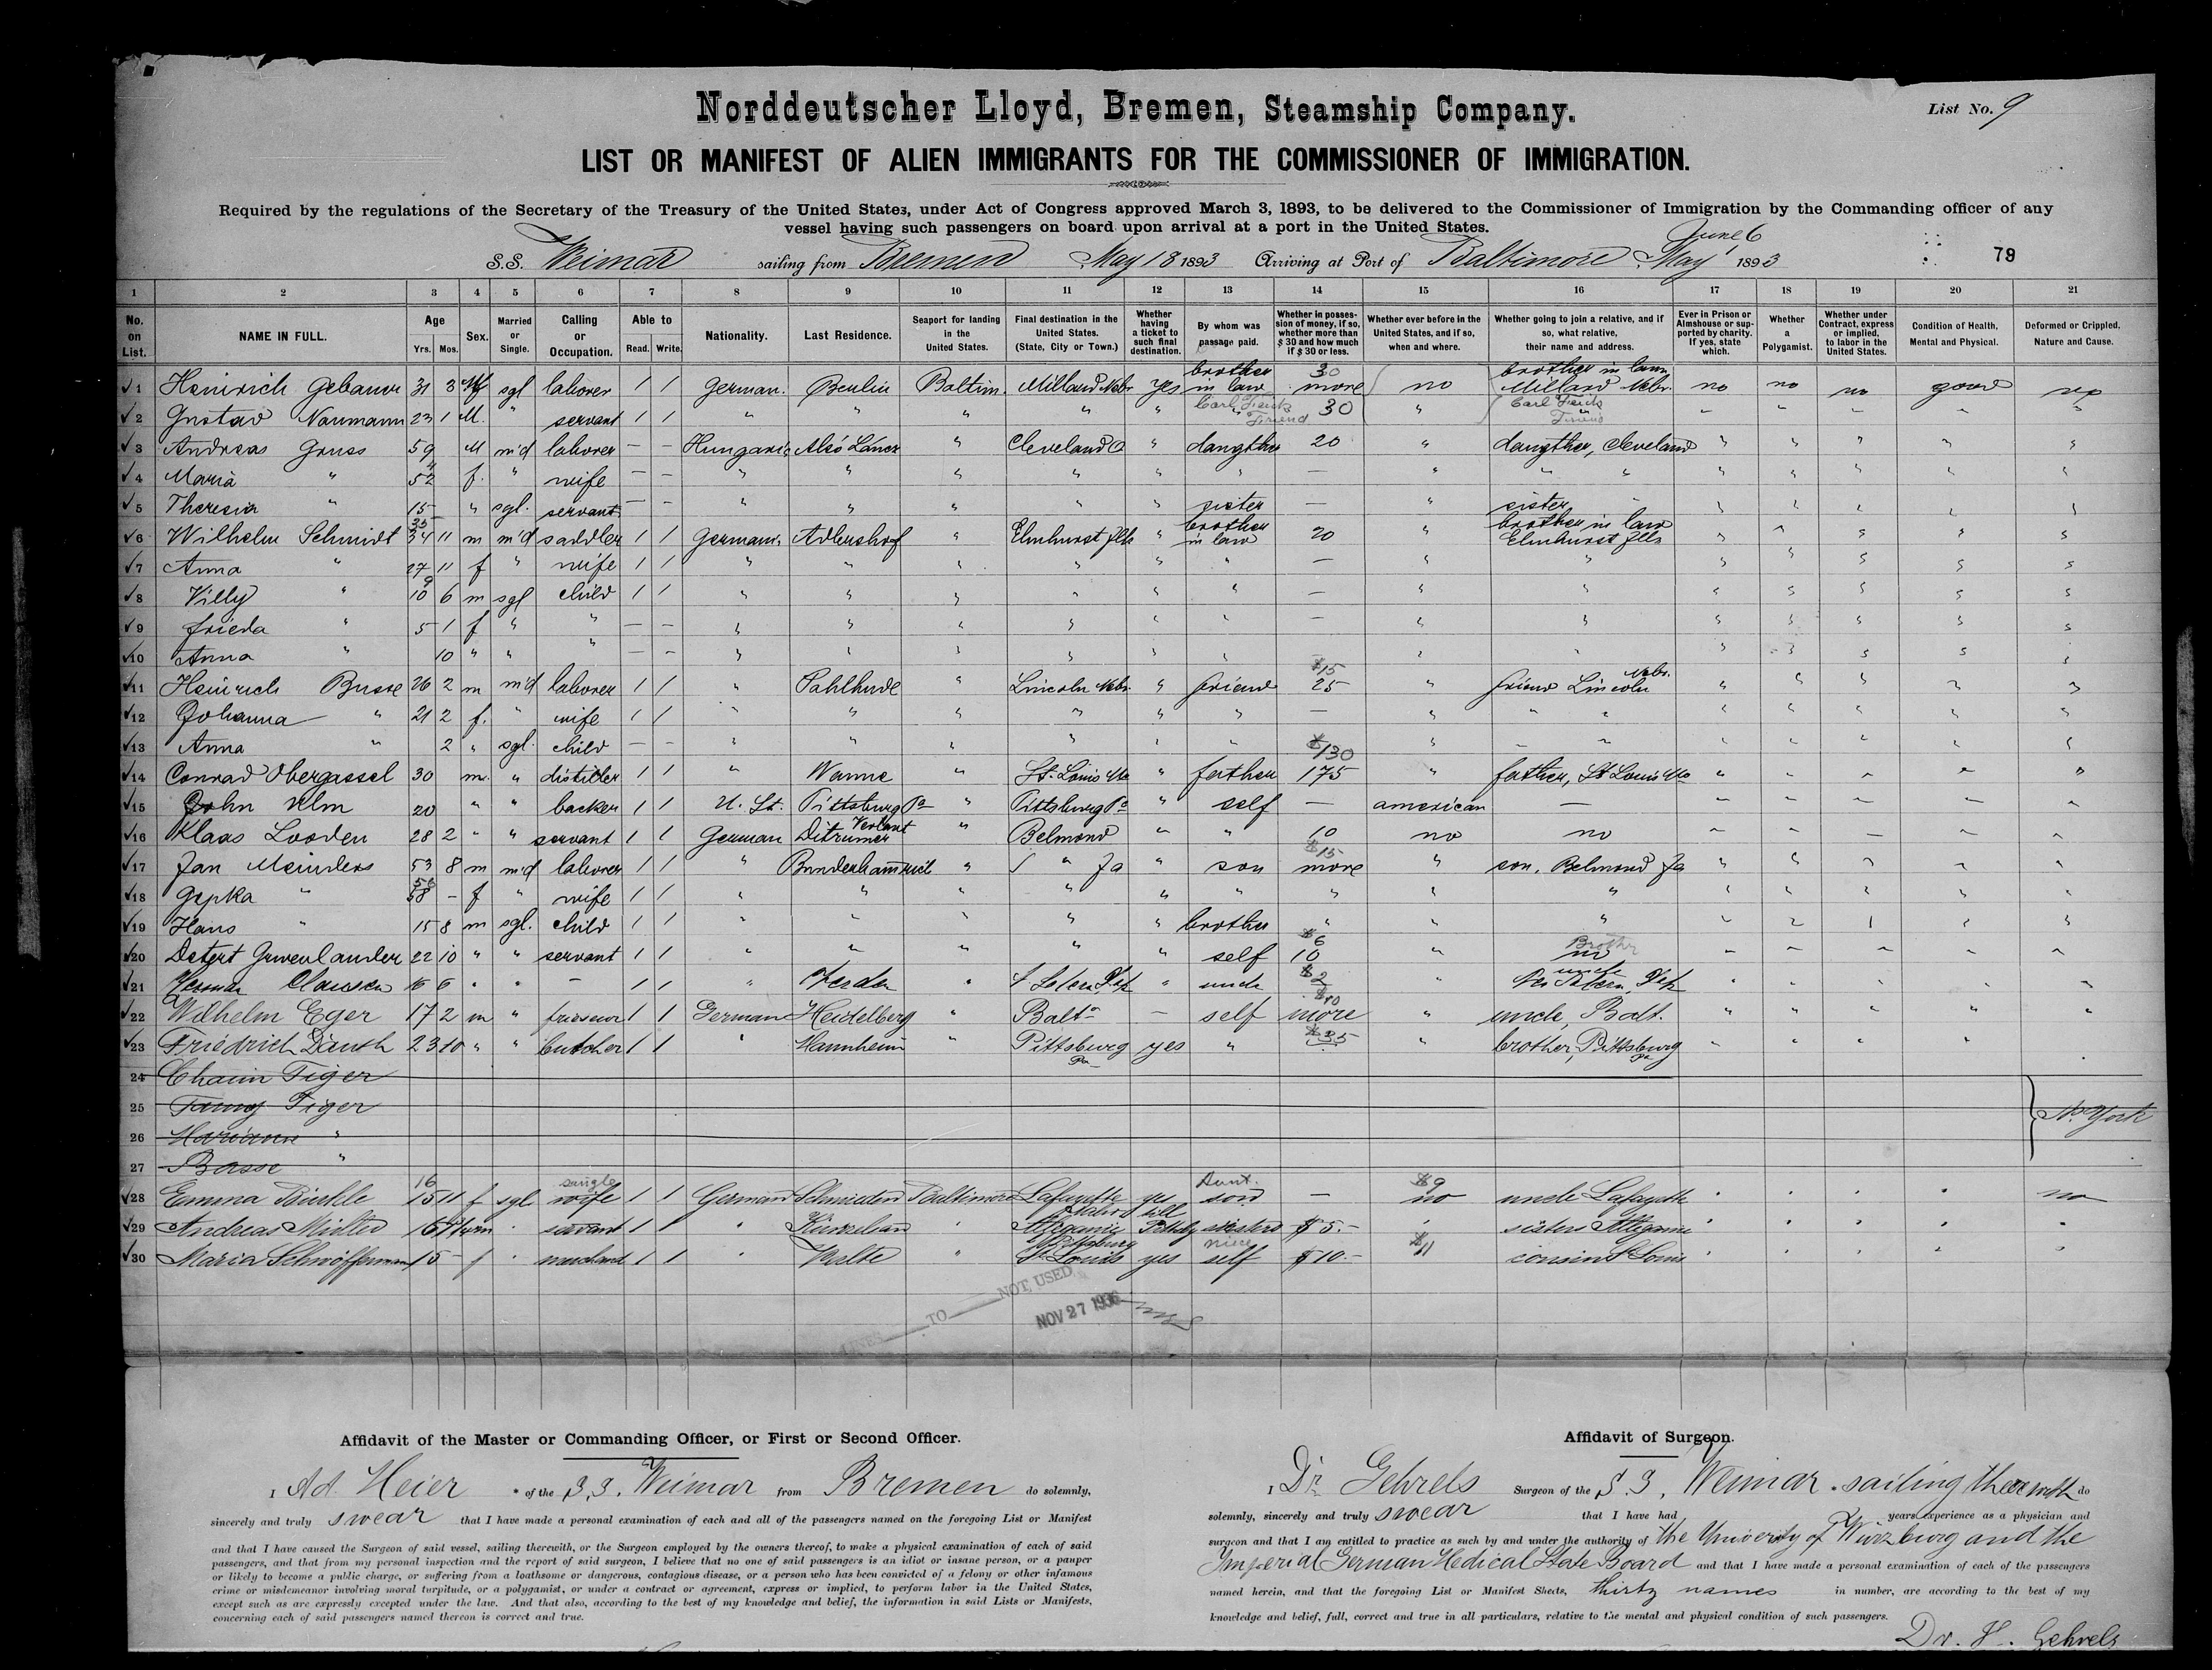 Norddeutscher Lloyd, Bremen, Steamship Company.
List No. 9
LIST OR MANIFEST OF ALIEN IMMIGRANTS FOR THE COMMISSIONER OF IMMIGRATION.
Required by the regulations of the Secretary of the Treasury of the United States, under Act of Congress approved March 3, 1893, to be delivered to the Commissioner of Immigration by the Commanding officer of any
vessel having such passengers on board upon arrival at a port in the United States.
June 6
S.S. Weimar sailing from Bremen May 18 1893 Arriving at Port of Baltimore May 1893 79
1 2 3 4 5 6 7 8 9 10 11 12 13 14 15 16 17 18 19 20 21
No. on List. NAME IN FULL. Age Yrs. Mos. Sex. Married or Single. Calling or Occupation. Able to Read. Write. Nationality. Last Residence. Seaport for landing in the United States. Final destination in the United States. (State, City or Town.) Whether having a ticket to such final destination. By whom was passage paid. Whether in possession of money, if so, whether more than $ 30 and how much if $ 30 or less. Whether ever before in the United States, and if so, when and where. Whether going to join a relative, and if so, what relative, their name and address. Ever in Prison or Almshouse or supported by charity. If yes, state which. Whether a Polygamist. Whether under Contract, express or implied, to labor in the United States. Condition of Health, Mental and Physical. Deformed or Crippled. Nature and Cause.
1 Heinrich Gebauer 31 3 M sgl laborer 1 1 German. Berlin Baltim. Millard Nebr yes brother in law 30 more no brother in law Millard Nebr. no no no good no
2 Gustav Naumann 23 1 M. " servant 1 1 " " " " " Carl Friend 30 " Carl
3 Andreas Gruss 59 M m'd laborer — — Hungaria Alsó Láncz " Cleveland O " daugther 20 " daugther, Cleveland " " " " "
4 Maria " 52 f. " wife — — " " " " " " — " " " " " " "
5 Theresia " 15 " sgl. servant — — " " " " " sister — " sister " " " " "
6 Wilhelm Schmidt 35 34 11 m m'd saddler 1 1 German. Adlershof " Elmhurst Ills " brother in law 20 " brother in law Elmhurst Ills " " " " "
7 Anna " 27 11 f " wife 1 1 " " " " " " — " " " " " " "
8 Villy " 9 10 6 m sgl child 1 1 " " " " " " — " " " " " " "
9 Frieda " 5 1 f " " — — " " " " " " — " " " " " " "
10 Anna " 10 " " " — — " " " " " " " " " " " " "
11 Heinrich Busse 26 2 m m'd laborer 1 1 " Pahlhude " Lincoln Nebr. " friend $15 25 " friend Lincoln Nebr. " " " " "
12 Johanna " 21 2 f. " wife 1 1 " " " " " " — " " " " " " " "
13 Anna " 2 " sgl. child — — " " " " " " " " " " " " " "
14 Conrad Obergassel 30 m. " distiller 1 1 " Wanne " St. Louis Mo " father $130 175 " father, St Louis Mo " " " " "
15 John Ulm 20 " " backer 1 1 U. St. Pittsburg Pa " Pittsburg Pa " self — american — " " " " "
16 Klaas Looden 28 2 " " servant 1 1 German Ditrumer Verlaat " Belmond " " 10 no no " " " " "
17 Jan Meinders 53 8 m m'd laborer 1 1 " Bunderhammrich " " Ja " son $15 more " son, Belmond Ja " " " " "
18 Gepka " 58 — f " wife 1 1 " " " " " " " " " " " " " "
19 Hans " 15 8 m sgl. child 1 1 " " " " " brother " " " " " " " "
20 Detert Gruenlander 22 10 " " servant 1 1 " " " " " self $6 10 " Brother no " " " " "
21 Herman Clausen 16 6 " " — 1 1 " Verden " " uncle $2 " uncle " " " " "
22 Wilhelm Eger 17 2 m " friseur 1 1 German Heidelberg " Balto — self $10 more " uncle, Balt. " " " " "
23 Friedrich Dauth 23 10 " " butcher 1 1 " Mannheim " Pittsburg Pa yes " $35 " brother, Pittsburg Pa " " " "
24 Chaim Tiger
25 Fanny Tiger
26 Mariann "
27 Basse "
N. York
28 Emma Bürkle 16 15 11 f sgl single wife 1 1 German Schmieden Baltimore Lafayette yes Aunt. — $9 no uncle Lafayette " " " " no
29 Andreas 16 m " servant 1 1 " " Alleganie Pittsburg till Pittsbg $5.- " sister Allegani " " " " "
30 Maria 15 — f " 1 1 " " St Louis yes niece self $10.- $11 cousin St Louis " " " " "
LINES TO NOT USED
NOV 27 1936
Affidavit of the Master or Commanding Officer, or First or Second Officer.
I, Ad. Heier of the S.S. Weimar from Bremen do solemnly,
sincerely and truly swear that I have made a personal examination of each and all of the passengers named on the foregoing List or Manifest
and that I have caused the Surgeon of said vessel, sailing therewith, or the Surgeon employed by the owners thereof, to make a physical examination of each of said
passengers, and that from my personal inspection and the report of said surgeon, I believe that no one of said passengers is an idiot or insane person, or a pauper
or likely to become a public charge, or suffering from a loathsome or dangerous, contagious disease, or a person who has been convicted of a felony or other infamous
crime or misdemeanor involving moral turpitude, or a polygamist, or under a contract or agreement, express or implied, to perform labor in the United States,
except such as are expressly excepted under the law. And that also, according to the best of my knowledge and belief, the information in said Lists or Manifests,
concerning each of said passengers named thereon is correct and true.
Affidavit of Surgeon.
I, Dr. Gehrels Surgeon of the S.S. Weimar sailing therewith do
solemnly, sincerely and truly swear that I have had 2 years experience as a physician and
surgeon and that I am entitled to practice as such by and under the authority of the University of Würzburg and the
Imperial German Medical State Board and that I have made a personal examination of each of the passengers
named herein, and that the foregoing List or Manifest Sheets, thirty names in number, are according to the best of my
knowledge and belief, full, correct and true in all particulars, relative to the mental and physical condition of such passengers.
Dr. H. Gehrels